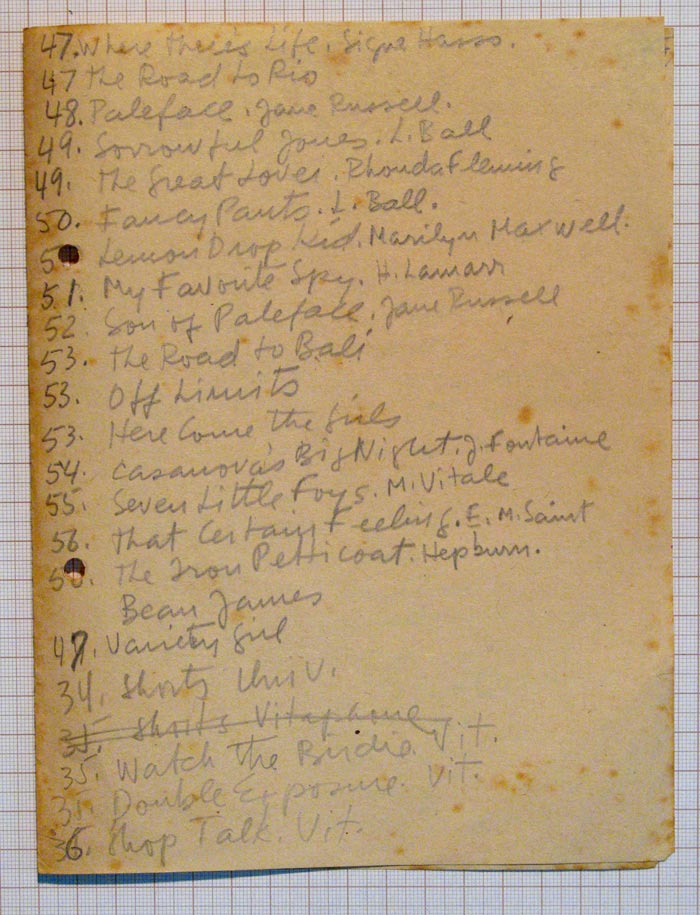 47. Where there's Life. Signe Hasso.
47 the Road to Rio
48. Paleface. Jane Russell.
49. Sorrowful Jones. L. Ball
49. the Great Lover. Rhonda Fleming
50. Fancy Pants. L. Ball.
5 Lemon Drop Kid. Marilyn Maxwell.
51. My Favorite Spy. H. Lamarr
52. Son of Paleface. Jane Russell
53. the Road to Bali
53. Off Limits
53. Here Come the Girls
54. Casanova's Big Night. J. Fontaine
55. Seven Little Foys. M. Vitale
56. that Certain Feeling. E. M. Saint
56. the Iron Petticoat. Hepburn.
Beau James
47. Variety Girl
34. Shorts Univ.
35. Shorts Vitaphone
35. Watch the Birdie. Vit.
35. Double Exposure. Vit.
36. Shop Talk. Vit.